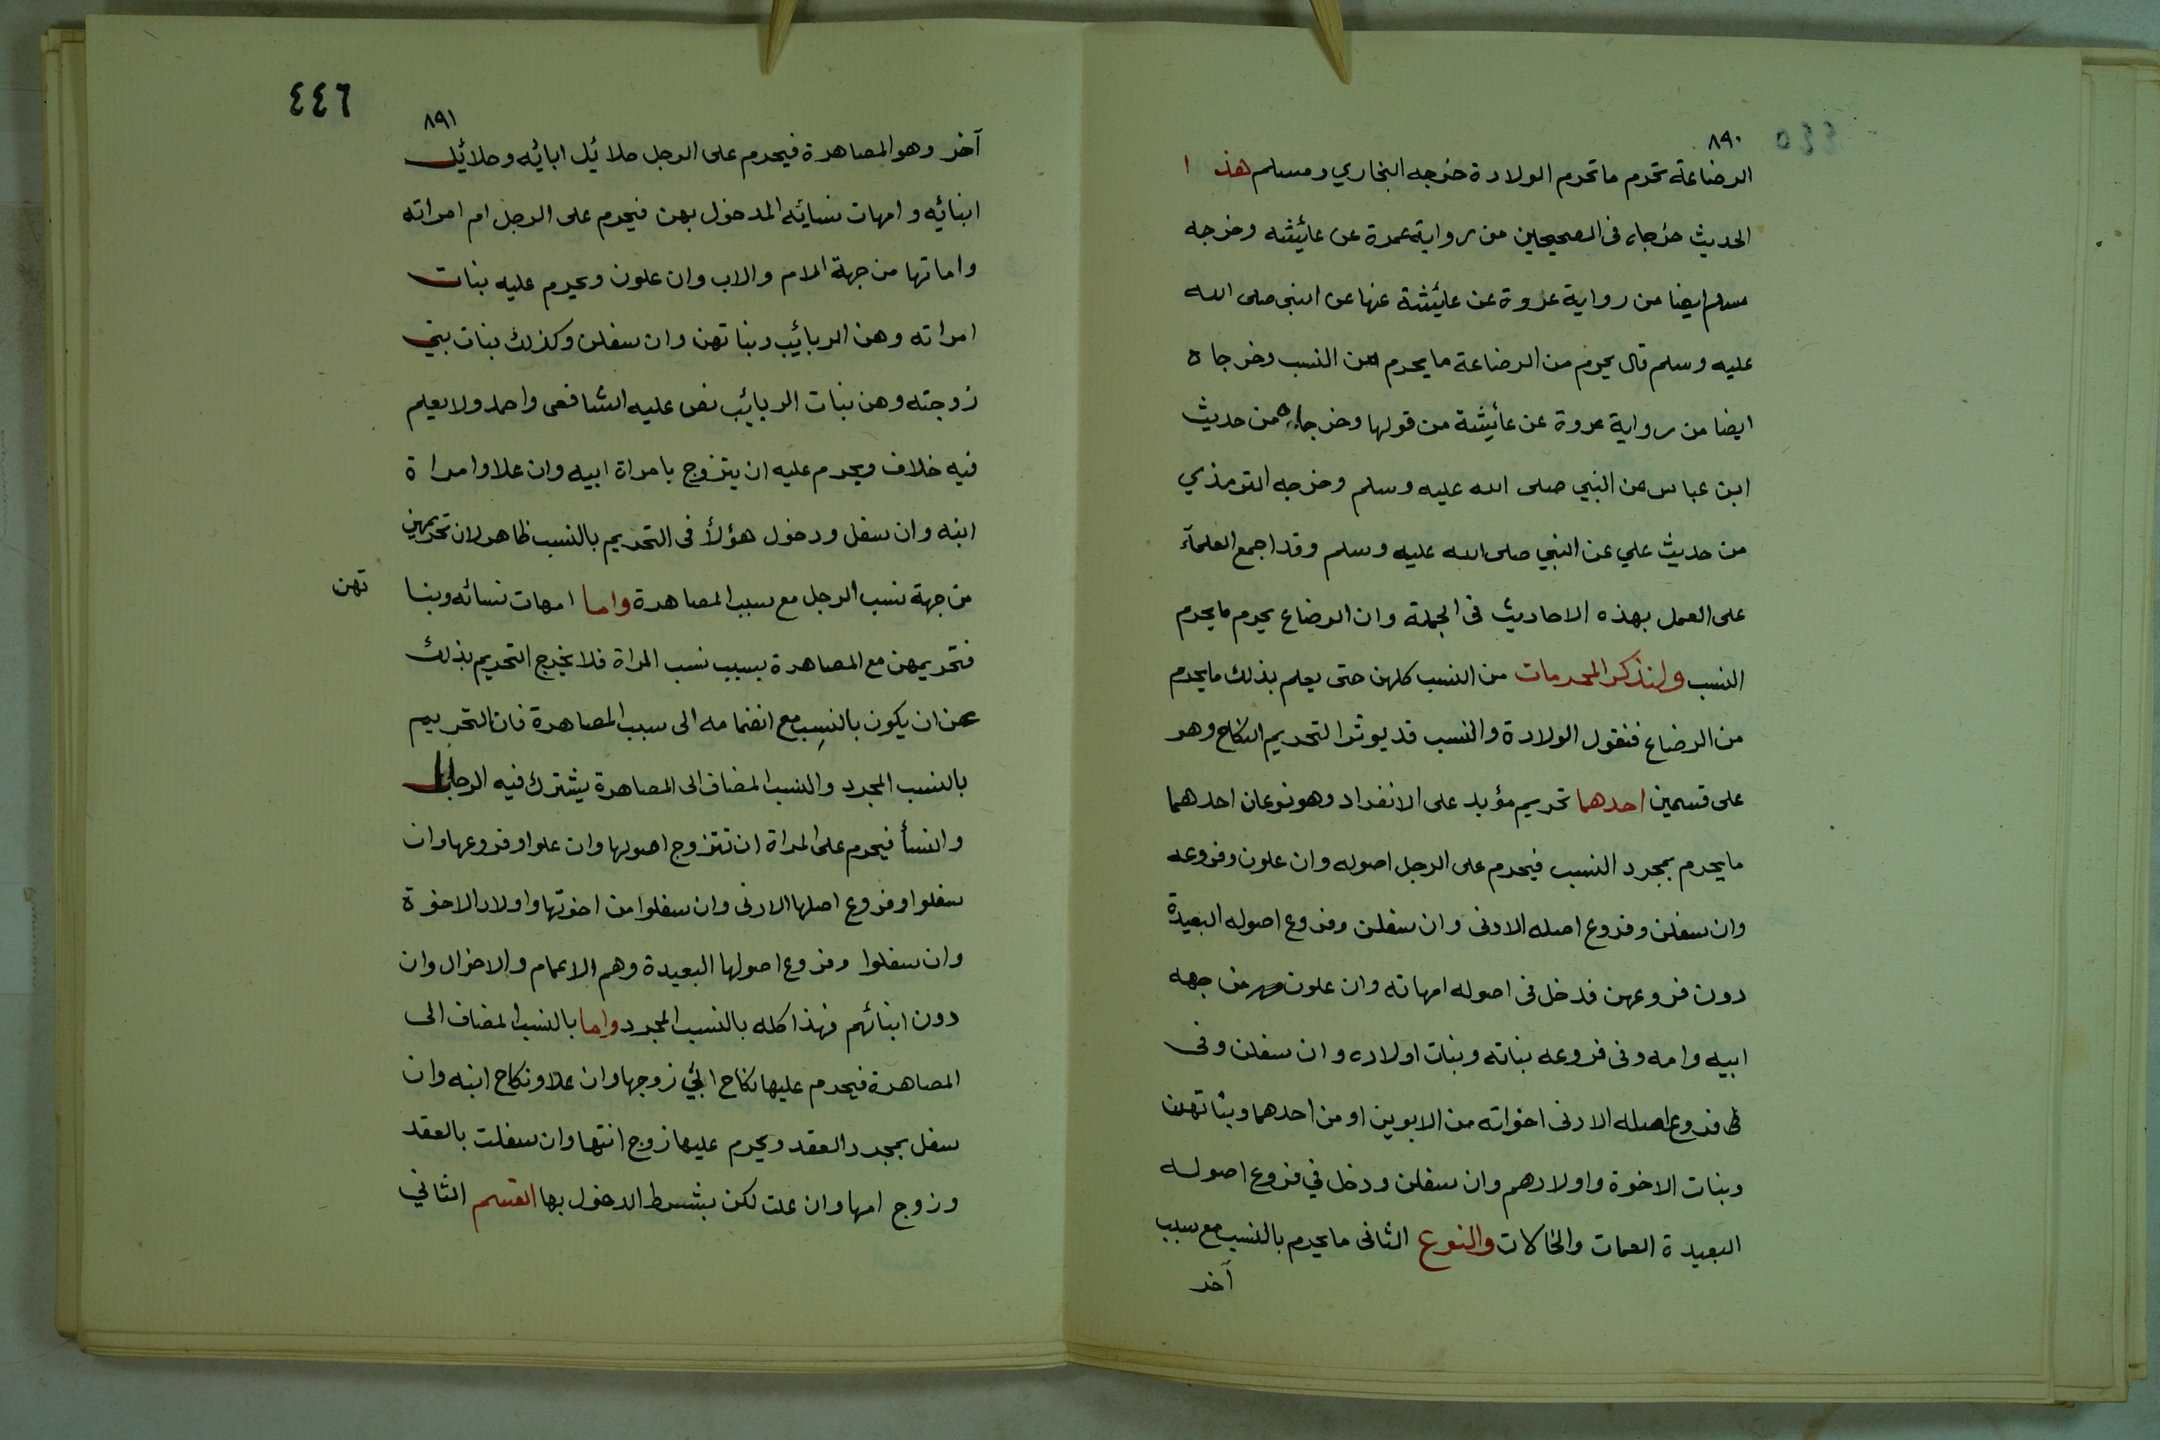 ٨٩٠
الرضاعة تحرم ما تحرم الولادة خرجه البخاري ومسلم هذا
الحديث خرجاه فى الصحيحين من رواية عمرة عن عائيشه وخرجه
مسلم ايضا من رواية عروة عن عائيشة عنها عن النبى صلى الله
عليه وسلم قال يحرم من الرضاعة ما يحرم من النسب وخرجاه
ايضا من رواية عروة عن عائيشة من قولها وخرجاه من حديث
ابن عباس عن النبي صلى الله عليه وسلم وخرجه الترمذي
من حديث علي عن النبي صلى الله عليه وسلم وقد اجمع العلمآء
على العمل بهذه الاحاديث فى الجملة وان الرضاع يحرم ما يحرم
النسب ولنذكر المحرمات من النسب كلهن حتى يعلم بذلك ما يحرم
من الرضاع فنقول الولادة والنسب قد يوثر التحريم النكاح وهو
على قسمين احدهما تحريم مؤبد على الانفراد وهو نوعان احدهما
ما يحرم بمجرد النسب فيحرم على الرجل اصوله وان علون وفروعه
وان سفلن وفروع اصله الادنى وان سفلن وفروع اصوله البعيدة
دون فروعهن فدخل فى اصوله امهاته وان علون من جهه
ابيه وامه وفى فروعه بناته وبنات اولاده وان سفلن وفى
فروع اصله الادنى اخواته من الابوين او من احدهما وبناتهن
وبنات الاخوة واولادهم وان سفلن ودخل في فروع اصوله
البعيدة العمات والخالات والنوع الثانى ما يحرم بالنسب مع سبب
آخر
٤٤٦
٨٩١
آخر وهو المصاهرة فيحرم على الرجل حلائيل ابائيه وحلائيل
ابنائيه وامهات نسايئه المدخول بهن فيحرم على الرجل ام امراته
واماتها من جهة الام والاب وان علون ويحرم عليه بنات
امراته وهن الربائيب وبناتهن وان سفلن وكذلك بنات بني
زوجته وهن بنات الربايئب نص عليه الشافعى واحمد ولا يعلم
فيه خلاف ويحرم عليه ان يتزوج بامراة ابيه وان علا وامراة
ابنه وان سفل ودخول هؤلأ فى التحريم بالنسب ظاهر لان تحريمهن
من جهة نسب الرجل مع سبب المصاهرة واما امهات نسائه وبنا تهن
فتحريمهن مع المصاهرة بسبب نسب المراة فلا يخرج التحريم بذلك
عن ان يكون بالنسب مع انضمامه الى سبب المصاهرة فان التحريم
بالنسب المجرد والنسب المضاف الى المصاهرة يشترك فيه الرجال
والنسأ فيحرم على المراة ان تتزوج اصولها وان علوا وفروعها وان
سفلوا وفروع اصلها الادنى وان سفلوا من اخوتها واولاد الاخوة
وان سفلوا وفروع اصولها البعيدة وهم الاعمام والاخوال وان
دون ابنائهم فهذا كله بالنسب المجرد واما بالنسب المضاف الى
المصاهرة فيحرم عليها نكاح ابي زوجها وان علا ونكاح ابنه وان
سفل بمجرد العقد ويحرم عليها زوج ابنتها وان سفلت بالعقد
وزوج امها وان علت لكن بشرط الدخول بها القسم الثاني